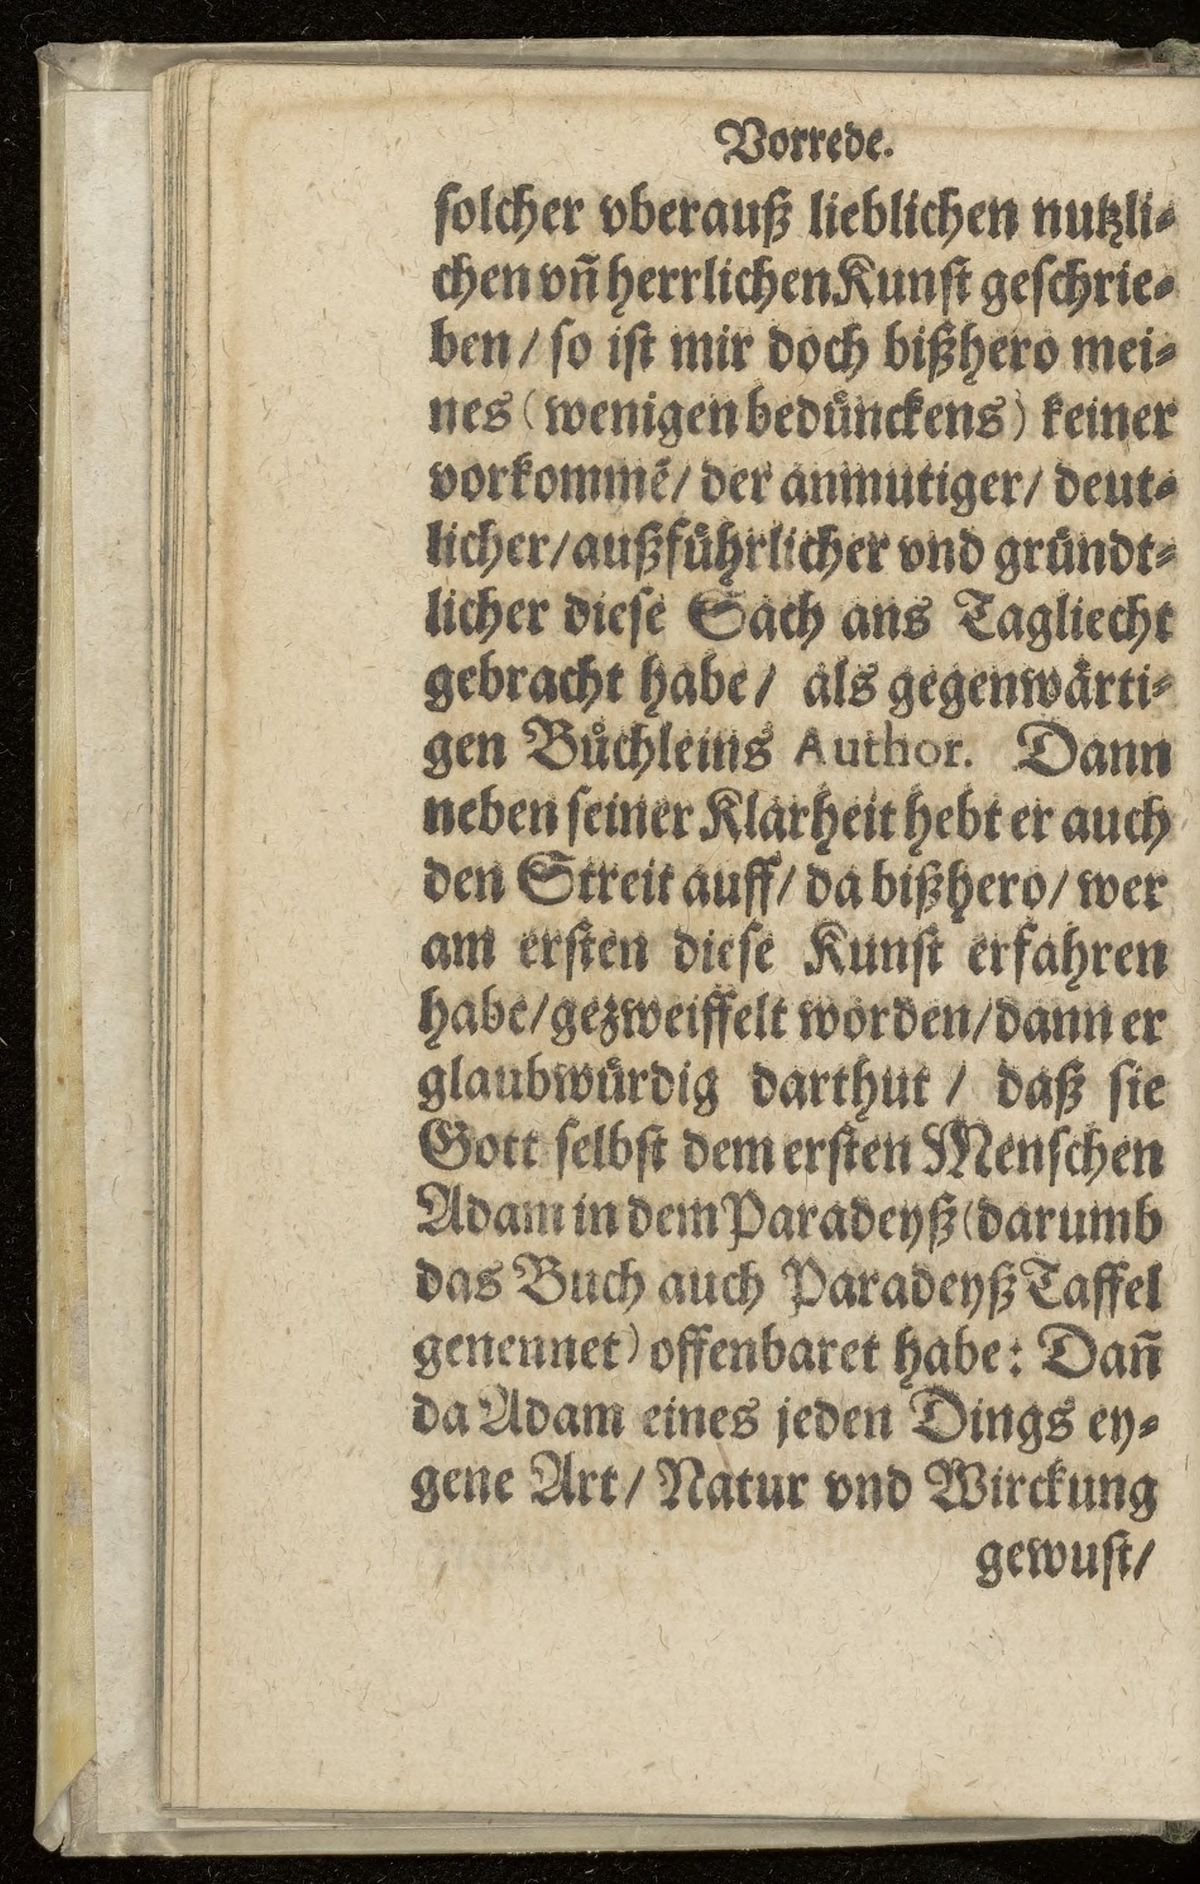 Vorrede.
ſolcher vberauß lieblichen nutzli⸗
chen vñ herrlichen Kunſt geſchrie⸗
ben / ſo iſt mir doch bißhero mei⸗
nes (wenigen beduͤnckens) keiner
vorkommẽ / der anmutiger / deut⸗
licher / außfuͤhrlicher vnd gruͤndt⸗
licher dieſe Sach ans Tagliecht
gebracht habe / als gegenwaͤrti⸗
gen Buͤchleins Author. Dann
neben ſeiner Klarheit hebt er auch
den Streit auff / da bißhero / wer
am erſten dieſe Kunſt erfahren
habe / gezweiffelt worden / dann er
glaubwuͤrdig darthut / daß ſie
Gott ſelbſt dem erſten Menſchen
Adam in dem Paradeyß (darumb
das Buch auch Paradeyß Taffel
genennet) offenbaret habe: Dañ
da Adam eines jeden Dings ey⸗
gene Art / Natur vnd Wirckung
gewuſt /